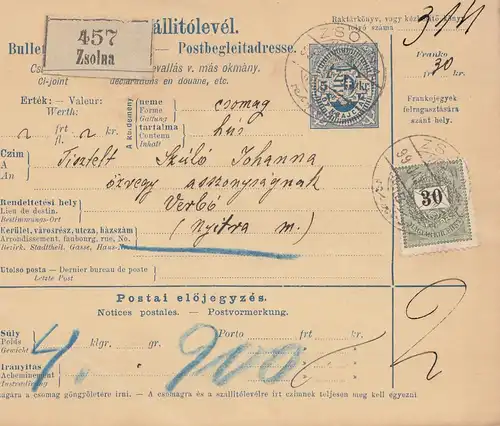 Szállitólevél.
Raktárkönyv, vagy
457
Zsolna
Bulle Postbegleitadresse.
ZSO
Franko
fr 30 kr
Cs vallás v. más okmány.
Ci-joint déclarations en douane, etc.
5 kr
Frankojegyek
felragasztására
szánt hely.
Érték: - Valeur:
Werth:
A küldemény
neme
Forme
Gattung
csomag
2 frt 2 kr.
fl.
tartalma
Contenu
Inhalt
hús
Czim
A
An
Tisztelt Szüló Johanna
özvegy asszonyságnak
ZS
30
Rendeltetési hely
Lieu de destin.
Bestimmungs-Ort
Verbó
Kerület, városrész, utcza, házszám
Arrondissement, faubourg, rue, No.
Bezirk, Stadttheil, Gasse, Haus-
(Nyitra m.)
Utolso posta - Dernier bureau de poste
Letzte Post
Postai előjegyzés.
Notices postales. - Postvormerkung.
Súly
Poids
Gewicht
4. klgr. 900 gr.
Porto frt kr.
2
Irányitás
Acheminement
Instradirung
agára a csomag göngyöletére irni. A csomagra és a szállitólevélre irt czimnek teljesen meg kell egyezni